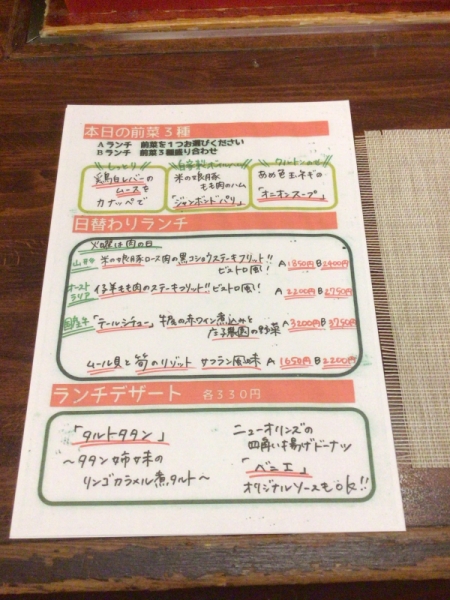 本日の前菜3種
Aランチ 前菜を1つお選びください
Bランチ 前菜3種盛り合わせ
しっとり
鶏白レバーの
ムースを
カナッペで
自家製
米の娘豚
もも肉のハム
「ジャンボンドパリ」
あめ色玉ネギの
「オニオンスープ」
日替わりランチ
火曜は肉の日
山形 米の娘豚ロース肉の黒コショウステーキフリット!! A1850円 B2400円
ビストロ風!
オーストラリア 仔羊もも肉のステーキフリット!! ビストロ風! A2200円 B2750円
国産牛 「テールシチュー」牛尾の赤ワイン煮込みと A3200円 B3750円
農園の野菜
ムール貝と筍のリゾット サフラン風味 A1650円 B2200円
ランチデザート 各330円
「タルトタタン」
～タタン姉妹の
リンゴカラメル煮タルト～
ニューオリンズの
四角い揚げドーナツ
「ベニエ」
オリジナルソースもok!!